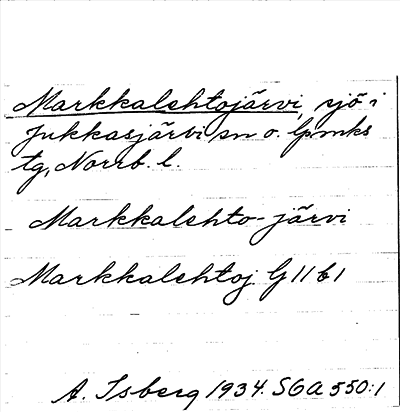 Markkalehtojärvi, sjö i
Jukkasjärvi sn o. lpmks
tg, Norrb. l.
Markkalehto-järvi
Markkalehtoj. G 11 b 1
A. Isberg 1934. SGA 550:1